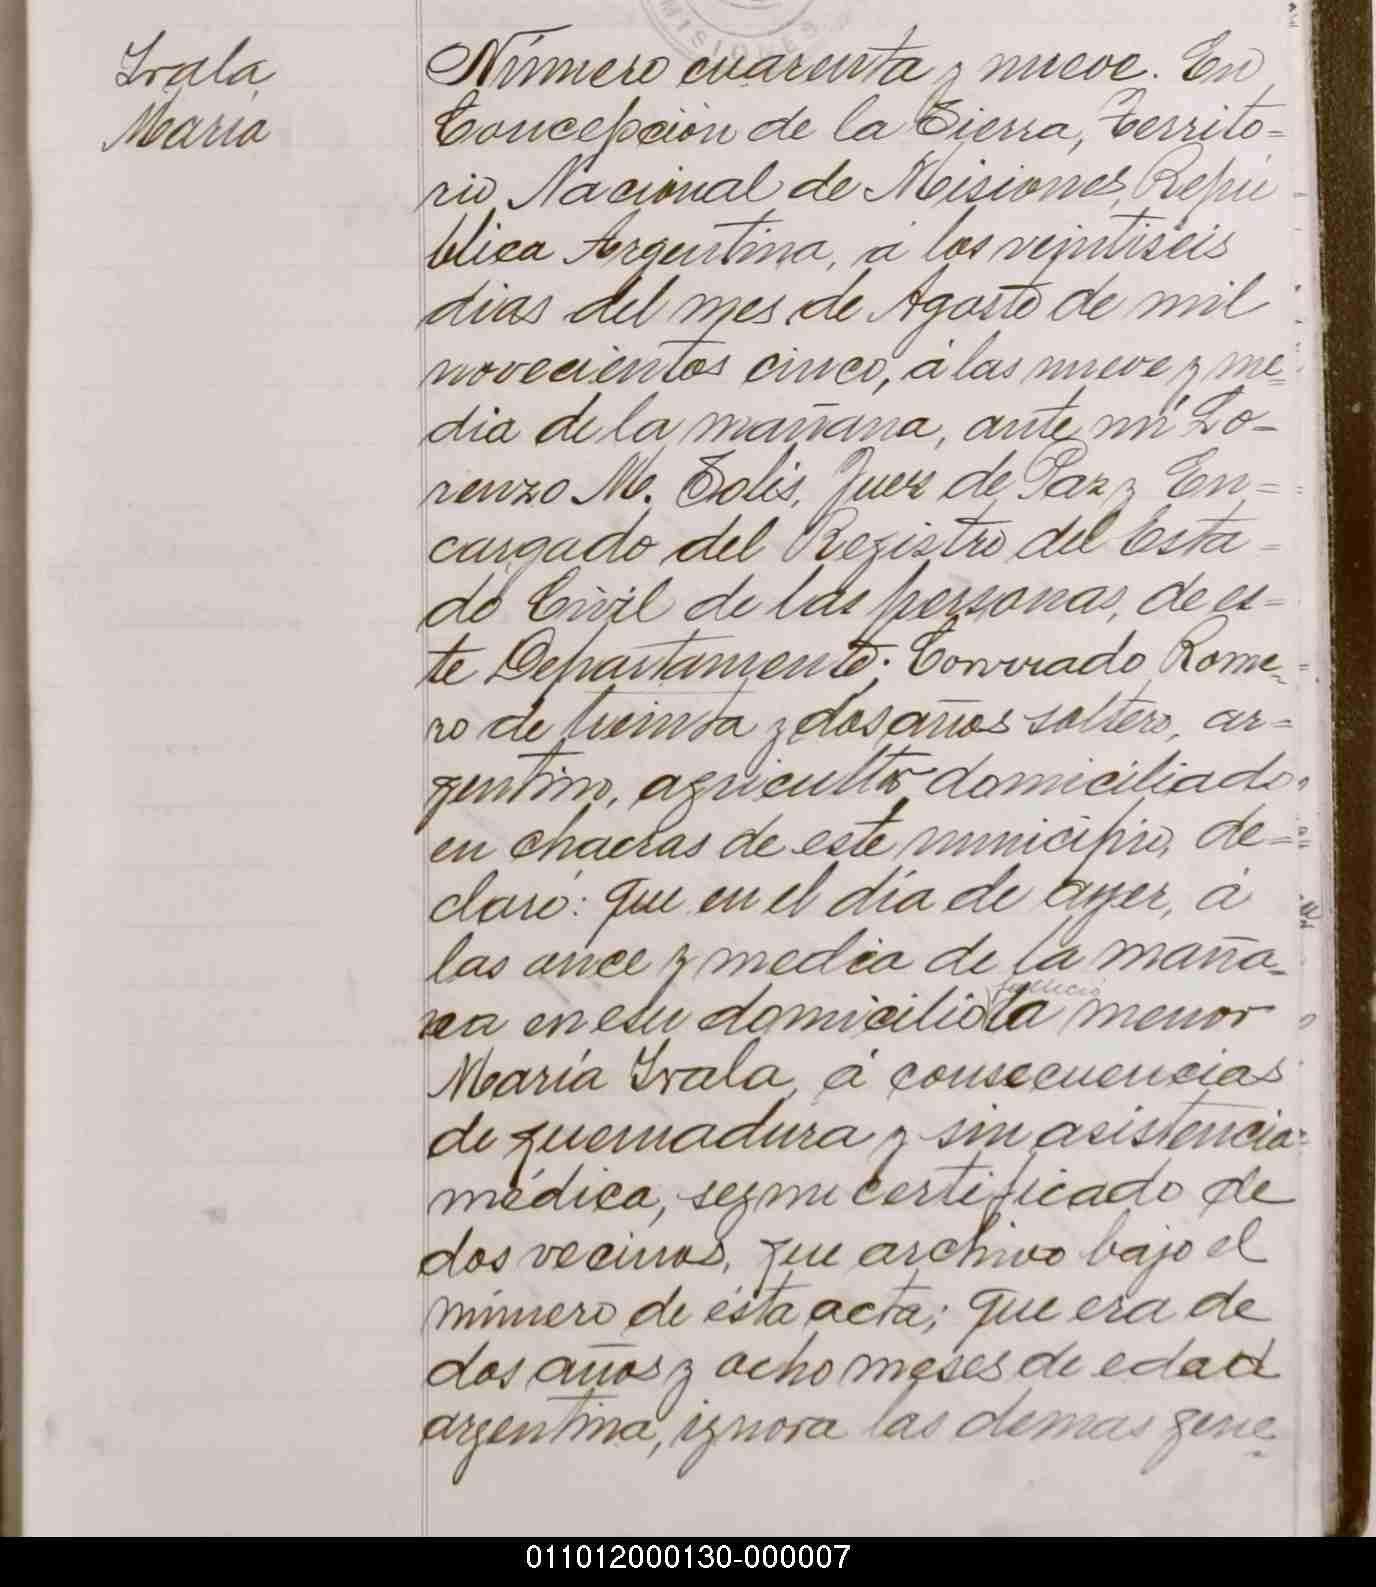 MISIONES
Irala
María
Número cuarenta y nueve. En
Concepción de la Sierra, Territo-
rio Nacional de Misiones, Repú
blica Argentina, á los veintiseis
dias del mes de Agosto de mil
novecientos cinco, á las nueve y me-
dia de la mañana, ante mí Lo-
renzo M. Solis, Juez de Paz y En-
cargado del Registro del Esta-
do Civil de las personas, de es-
te Departamento; Conrado Rome-
ro de treinta y dos años soltero, ar-
gentino, agricultor domiciliado
en chacras de este municipio, de-
claró: que en el día de ayer, á
las once y media de la maña-
na en su domicilio falleció la menor
María Irala, á consecuencias
de quemadura y sin asistencia
médica, segun certificado de
dos vecinos, que archivo bajo el
número de ésta acta; que era de
dos años y ocho meses de edad
argentina, ignora las demas gene-
011012000130-000007